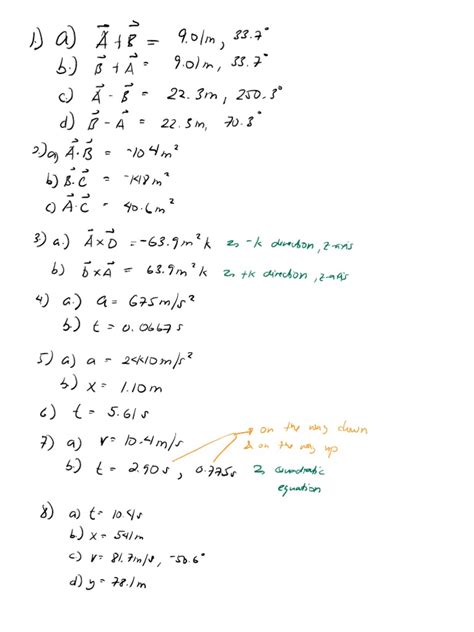 1.) a) A⃗ + B⃗ = 9.01m, 33.7°
b.) B⃗ + A⃗ = 9.01m, 33.7°
c) A⃗ - B⃗ = 22.3m, 250.3°
d) B⃗ - A⃗ = 22.3m, 70.3°
2.) a) A⃗·B⃗ = -104m²
b) B⃗·C⃗ = -148m²
c) A⃗·C⃗ = 40.6m²
3) a.) A⃗×D⃗ = -63.9m²k -k direction, z-axis
b) D⃗×A⃗ = 63.9m²k +k direction, z-axis
4) a.) a = 675m/s²
b.) t = 0.0667s
5) a) a = m/s²
b.) x = 1.10m
6) t = 5.61s
7) a) v = 10.4m/s on the way down
& on the way up
b) t = 2.90s, 0.775s quadratic
equation
8) a) t = 10.4s
b.) x = 541m
c) v = 81.7m/s, -50.6°
d) y = 78.1m